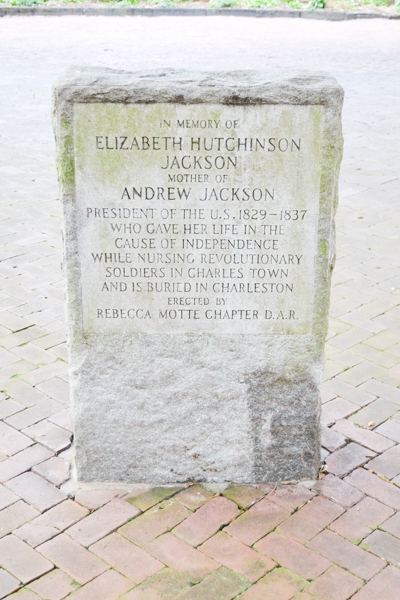 IN MEMORY OF
ELIZABETH HUTCHINSON
JACKSON
MOTHER OF
ANDREW JACKSON
PRESIDENT OF THE U.S. 1829-1837
WHO GAVE HER LIFE IN THE
CAUSE OF INDEPENDENCE
WHILE NURSING REVOLUTIONARY
SOLDIERS IN CHARLES TOWN
AND IS BURIED IN CHARLESTON
ERECTED BY
REBECCA MOTTE CHAPTER D.A.R.